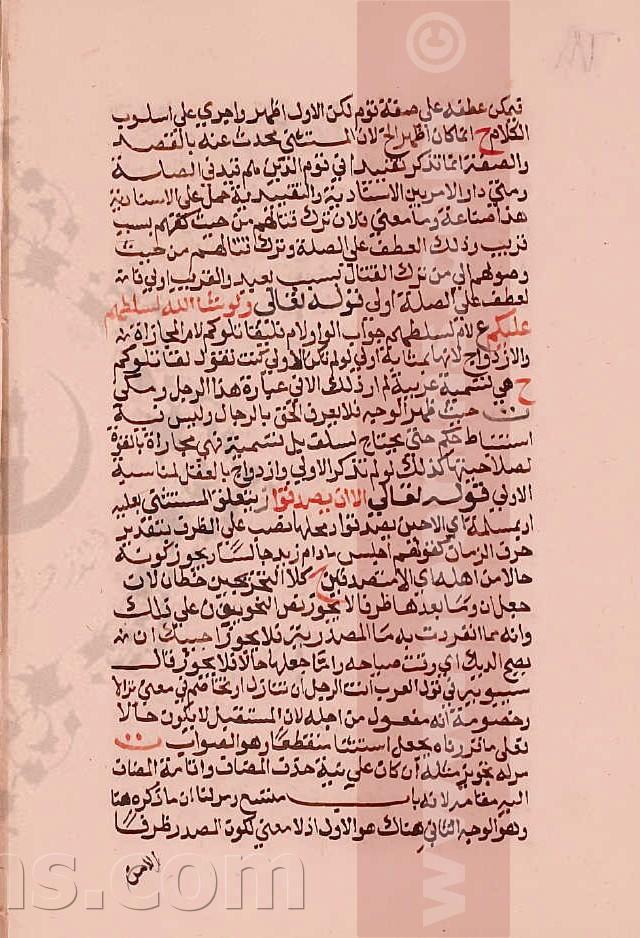 فيمكن عطفه على صفة قوم لكن الاول اظهر واجري على اسلوب
الكلام ح انما كان اظهر الخ لان المستثنى محدث عنه بالقصد
والصفة انما تذكر تقييدا في قوم الذين هم قيد في الصلة
ومتى دار الامر بين الاستادية والتقييدية حمل على الاستادية
هذا صناعة وما معنى فلان ترك قتالهم من حيث كفهم بسبب
قريب وذلك العطف على الصلة وترك قتالهم من حيث
وصولهم الى من ترك القتال بسبب بعيد والقريب اولى فان
لعطف على الصلة اولى قوله تعالى ولو شاء الله لسلطهم
عليكم ع لام لسلطهم جواب لو ولام فلقاتلوكم لام المجازاة
والازدواج لانها بمثابة اولى لو لم تكن الاولى كنت تقول لقاتلوكم
ح هي تسمية غريبة لم ار ذلك الا في عبارة هذا الرجل ومكي
حيث ظهر الوجه فلا يعرف الحق بالرجال وليس نية
استنباط حكم حتى يحتاج لسلف بل تسمية فهي مجاراة بالقوة
لصلاحيتها كذلك لو لم تذكر الاولى وازدواج بالعقل لمناسبة
الاولى قوله تعالى الا ان يصدقوا ز يتعلق المستثنى بعليه
او بمسلمة اي الا حين يصدقوا ومحلها نصب على الظرف بتقدير
حرف الزمان كقولهم اجلس ما دام زيد جالسا ويجوز كونه
حالا من اهله اي الا متصدقين ح كلا التخريجين خطا لان
جعل ان وما بعدها ظرفا لا يجوز نص النحويون على ذلك
وانه مما انفردت به ما المصدرية فلا يجوز اجيئك ان
يصيح الديك اي وقت صياحه واما جعلها حالا فلا يجوز قال
سيبويه في قول العرب انت الرجل ان تنازل او تخاصم في معنى نزالا
وخصومة انه مفعول من اجله لان المستقبل لا يكون حالا
فعلى ما قررناه يجعل استثنا منقطعا وهو الصواب
من له تجويز مثله ان كان على نية حذف المضاف واقامة المضاف
اليه مقامه لانه باب متسع ومر لنا ان ما ذكره هنا
وهو الوجه الثاني هناك هو الاول اذ لا معنى لكون المصدر ظرفا
ns.com
©